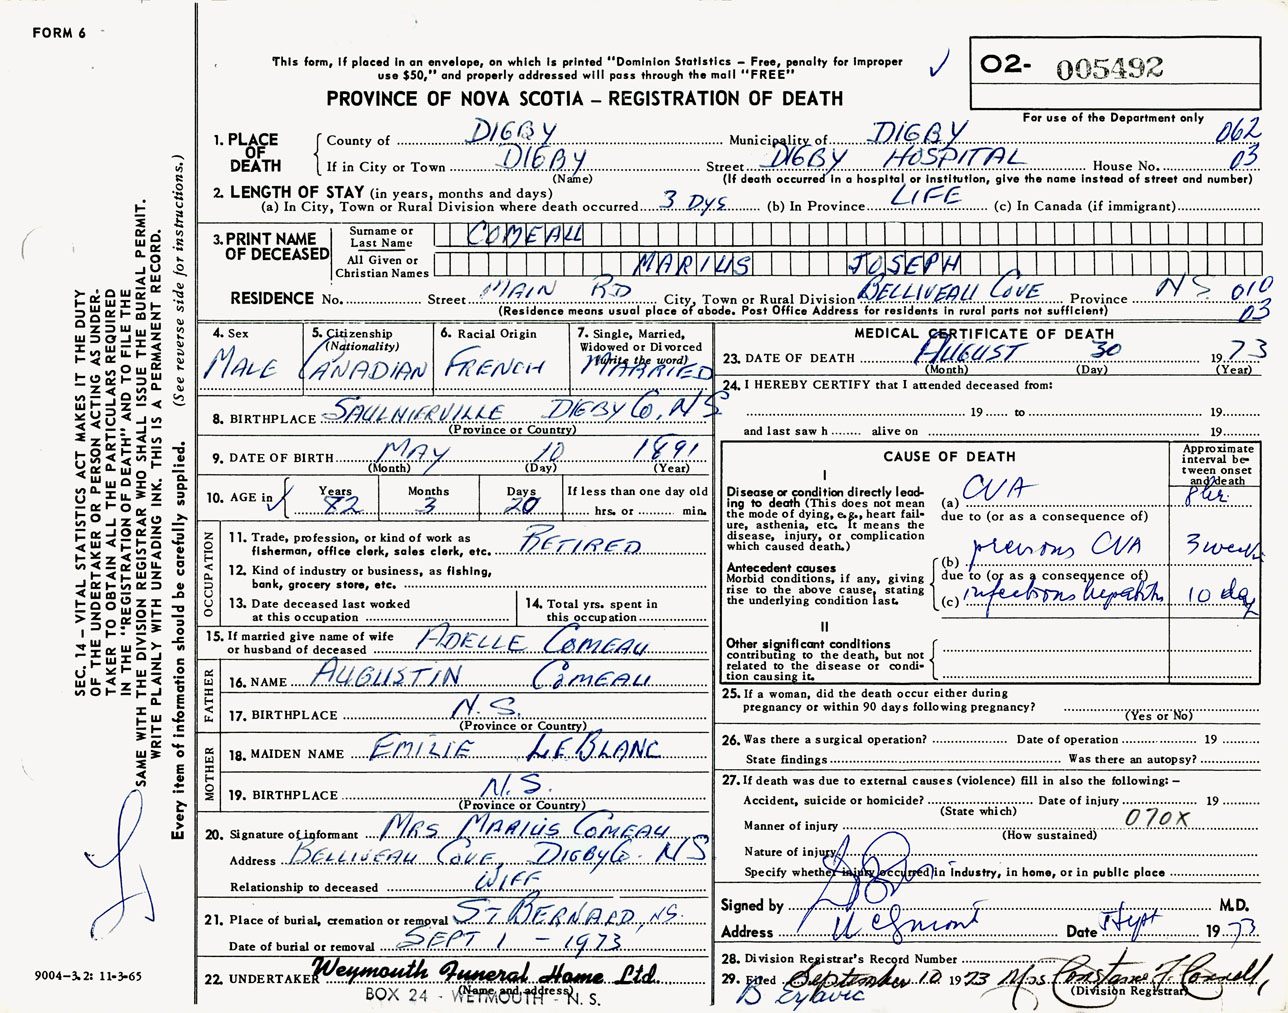 FORM 6
SEC. 14 – VITAL STATISTICS ACT MAKES IT THE DUTY
OF THE UNDERTAKER OR PERSON ACTING AS UNDER-
TAKER TO OBTAIN ALL THE PARTICULARS REQUIRED
IN THE "REGISTRATION OF DEATH" AND TO FILE THE
SAME WITH THE DIVISION REGISTRAR WHO SHALL ISSUE THE BURIAL PERMIT.
WRITE PLAINLY WITH UNFADING INK. THIS IS A PERMANENT RECORD.
Every item of information should be carefully supplied. (See reverse side for instructions.)
9004–3.2: 11-3-65
This form, if placed in an envelope, on which is printed "Dominion Statistics – Free, penalty for improper
use $50," and properly addressed will pass through the mail "FREE"
PROVINCE OF NOVA SCOTIA – REGISTRATION OF DEATH
02- 005492
For use of the Department only
1. PLACE OF DEATH
County of DIGBY Municipality of DIGBY 062
If in City or Town DIGBY Street DIGBY HOSPITAL House No. 03
(Name) (If death occurred in a hospital or institution, give the name instead of street and number)
2. LENGTH OF STAY (in years, months and days)
(a) In City, Town or Rural Division where death occurred 3 DYS (b) In Province LIFE (c) In Canada (if immigrant)
3. PRINT NAME OF DECEASED
Surname or Last Name COMEAU
All Given or Christian Names MARIUS JOSEPH
RESIDENCE No. Street MAIN RD City, Town or Rural Division BELLIVEAU COVE Province NS 010
(Residence means usual place of abode. Post Office Address for residents in rural parts not sufficient) 03
4. Sex MALE
5. Citizenship (Nationality) CANADIAN
6. Racial Origin FRENCH
7. Single, Married, Widowed or Divorced (Write the word) MARRIED
8. BIRTHPLACE SAULNIERVILLE DIGBY CO, NS
(Province or Country)
9. DATE OF BIRTH MAY 10 1891
(Month) (Day) (Year)
10. AGE in Years 82 Months 3 Days 20 If less than one day old hrs. or min.
OCCUPATION
11. Trade, profession, or kind of work as fisherman, office clerk, sales clerk, etc. RETIRED
12. Kind of industry or business, as fishing, bank, grocery store, etc.
13. Date deceased last worked at this occupation
14. Total yrs. spent in this occupation
15. If married give name of wife or husband of deceased ADELLE COMEAU
FATHER
16. NAME AUGUSTIN COMEAU
17. BIRTHPLACE N.S.
(Province or Country)
MOTHER
18. MAIDEN NAME EMILIE LEBLANC
19. BIRTHPLACE N.S.
(Province or Country)
20. Signature of informant MRS MARIUS COMEAU
Address BELLIVEAU COVE, DIGBY CO. NS
Relationship to deceased WIFE
21. Place of burial, cremation or removal ST BERNARD, NS.
Date of burial or removal SEPT 1 – 1973
22. UNDERTAKER Weymouth Funeral Home Ltd.
(Name and address)
BOX 24 - WEYMOUTH - N. S.
MEDICAL CERTIFICATE OF DEATH
23. DATE OF DEATH AUGUST 30 1973
(Month) (Day) (Year)
24. I HEREBY CERTIFY that I attended deceased from:
19 to 19
and last saw h alive on 19
CAUSE OF DEATH
Approximate interval between onset and death
I
Disease or condition directly leading to death (This does not mean the mode of dying, e.g., heart failure, asthenia, etc. It means the disease, injury, or complication which caused death.)
(a) CVA
due to (or as a consequence of)
Antecedent causes
Morbid conditions, if any, giving rise to the above cause, stating the underlying condition last.
(b) previous CVA 3 weeks
due to (or as a consequence of)
(c) infectious hepatitis 10 day
II
Other significant conditions
contributing to the death, but not related to the disease or condition causing it.
25. If a woman, did the death occur either during pregnancy or within 90 days following pregnancy?
(Yes or No)
26. Was there a surgical operation? Date of operation 19
State findings Was there an autopsy?
27. If death was due to external causes (violence) fill in also the following: –
Accident, suicide or homicide? Date of injury 19
(State which)
Manner of injury 070X
(How sustained)
Nature of injury
Specify whether injury occurred in industry, in home, or in public place
Signed by M.D.
Address Date Sept 1973
28. Division Registrar's Record Number
29. Filed September 10 1973 Mrs Constance F. Connell,
(Division Registrar)